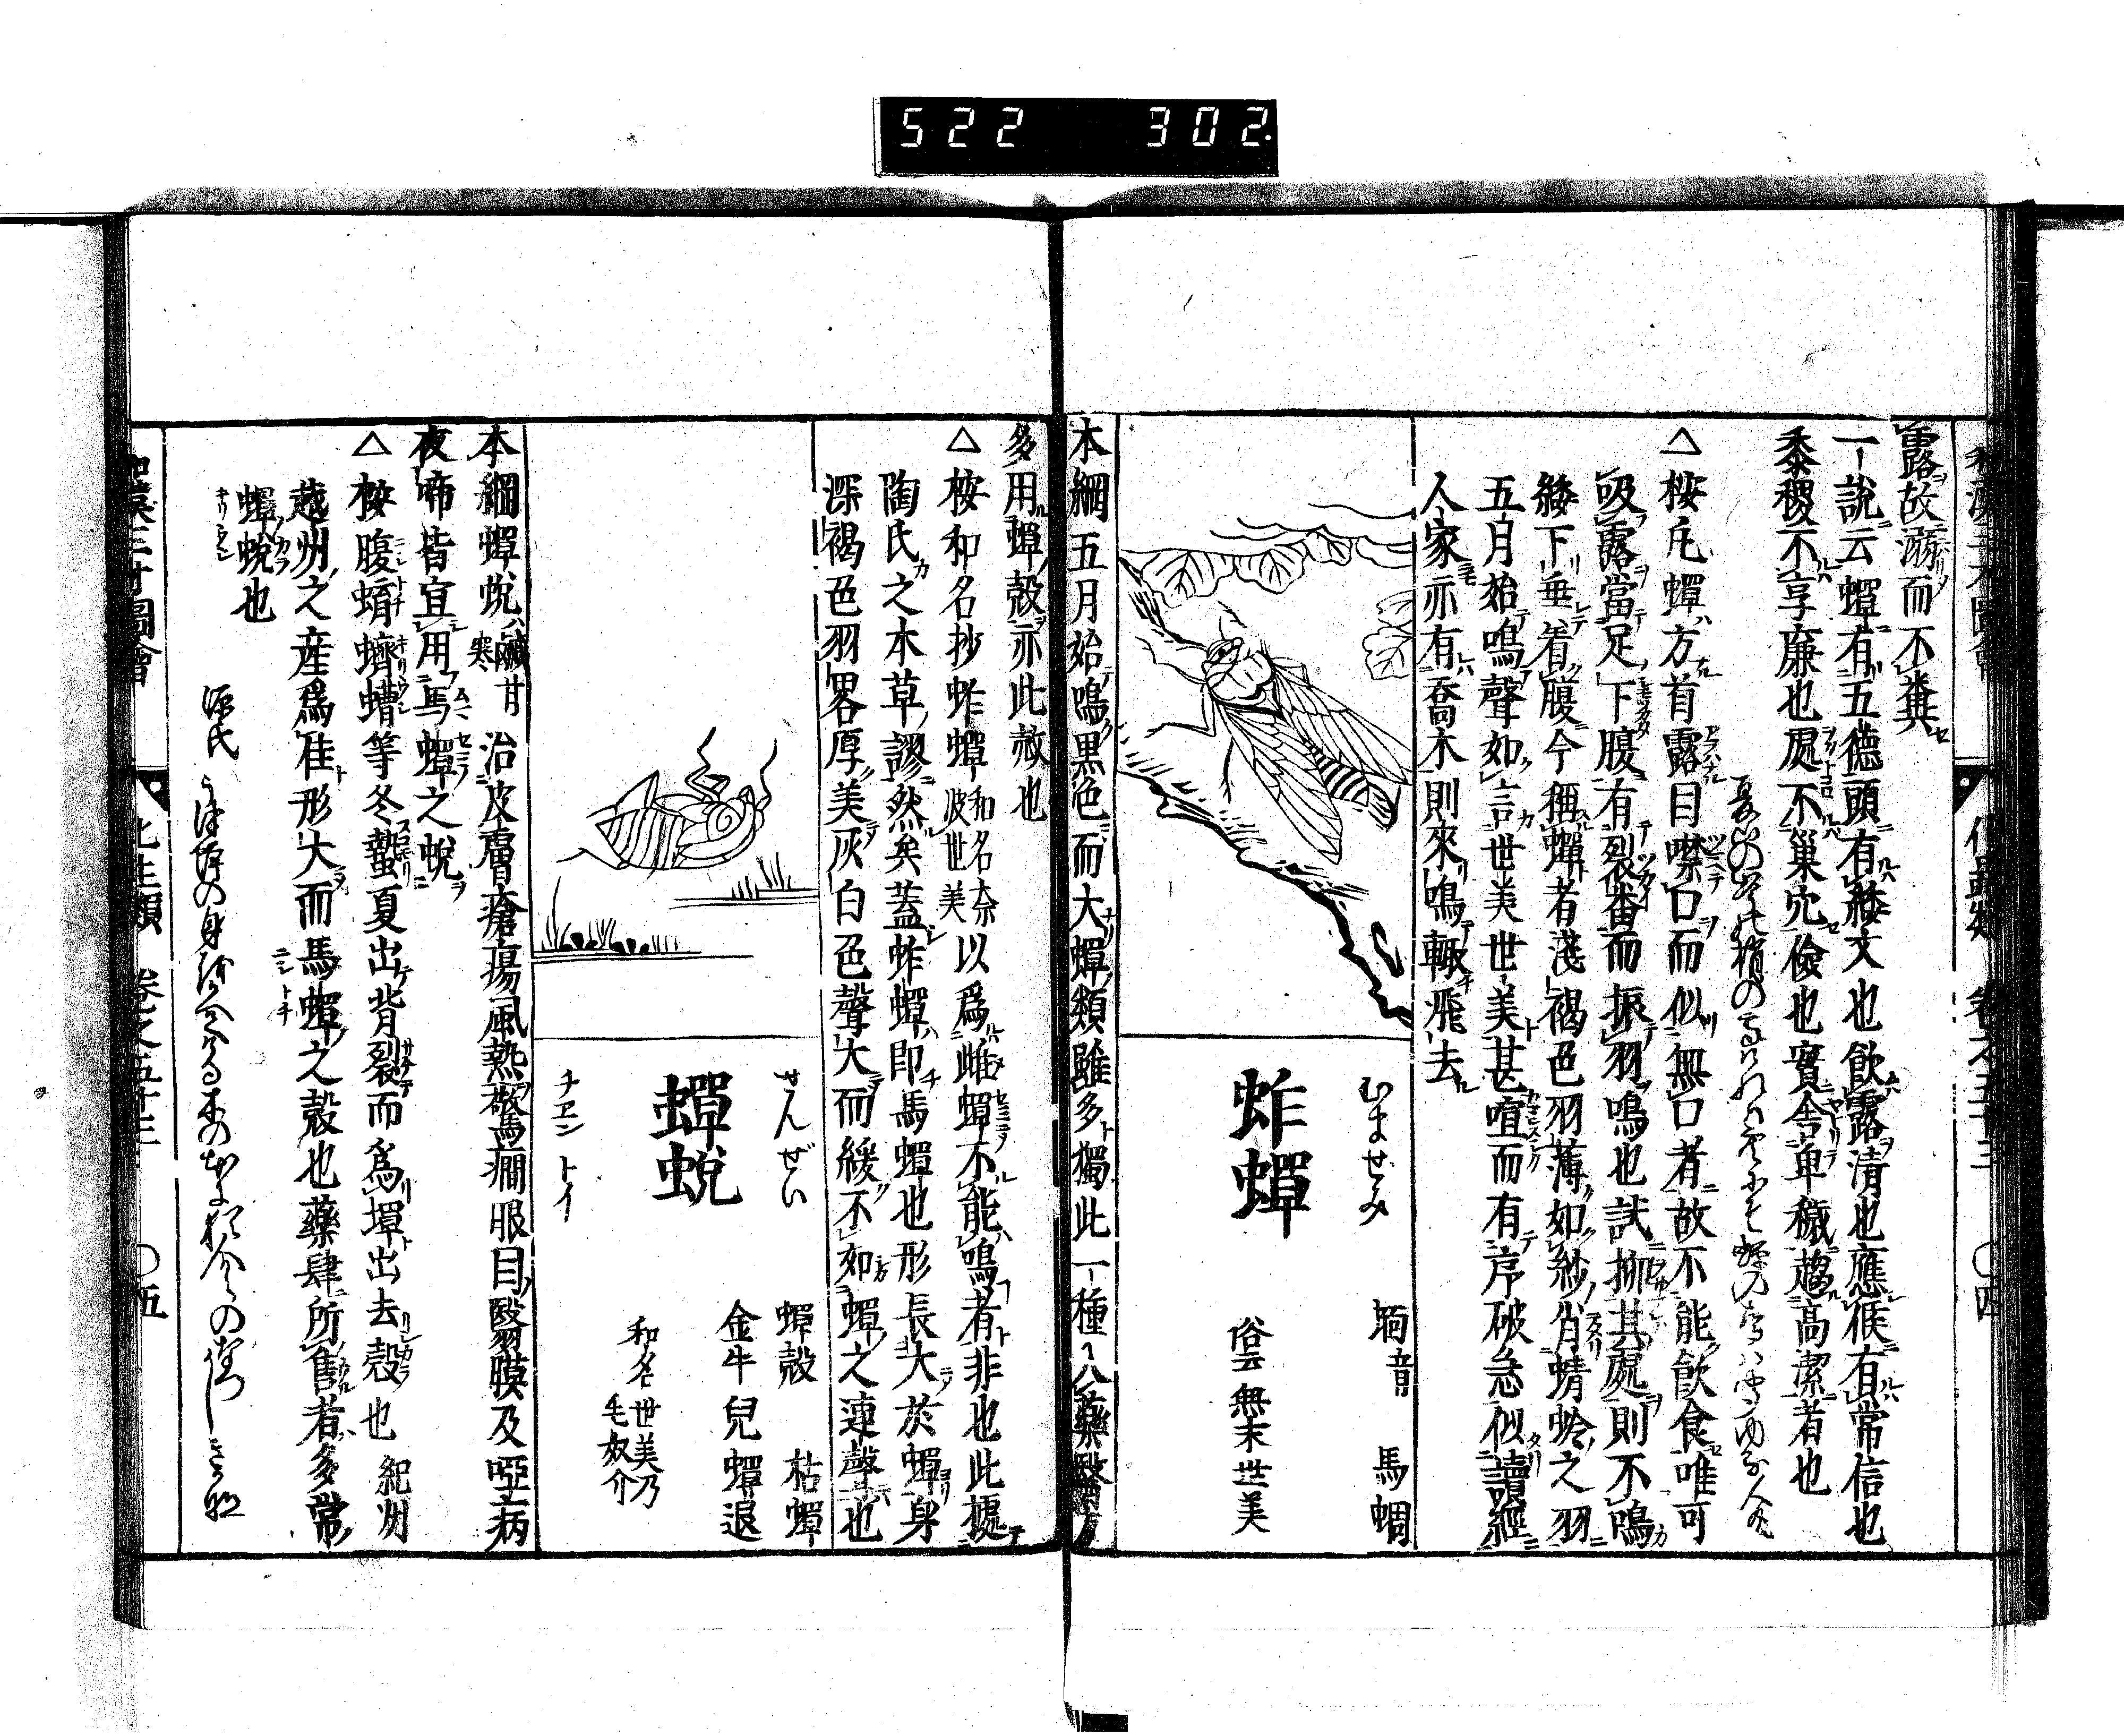 522 302
露故溺而不糞
一說云蟬有五德頭有緌文也飲露清也應候有常信也
黍稷不享廉也處不巢穴儉也實舍卑穢趨高潔者也
△按凢蟬方首露目噤口而似無口者故不能飲食唯可
吸露當足下腹有裂番而振羽鳴也試捓其處則不鳴
緌下垂着腹今稱蟬者淺褐色羽薄如紗肖蜻蛉之羽
五月始鳴聲如言世美世美甚喧而有序破急似讀經
人家亦有喬木則來鳴輙飛去
むませみ
蚱蟬
馬蜩
俗云無末世美
本綱五月始鳴黒色而大蟬類雖多獨此一種入藥醫方
多用蟬殻亦此蛻也
△按和名抄蚱蟬和名奈波世美以爲雌蟬不能鳴者非也此據
陶氏之本草謬然矣蓋蚱蟬即馬蟬也形長大於蟬身
深褐色羽畧厚美灰白色聲大而緩不如蟬之連聲也
せんぜい
蟬蛻
チヱントイ
蟬殻 枯蟬
金牛兒 蟬退
和名世美乃毛奴介
本綱蟬蛻鹹甘寒治皮膚瘡瘍風熱驚癇眼目翳膜及啞病
夜啼皆宜用馬蟬之蛻
△按腹蜟蠐螬等冬蟄夏出背裂而爲蟬出去殻也紀州
越州之産爲佳形大而馬蟬之殻也藥肆所售者多常
蟬蛻也
源氏
化生類 卷之五十三 〇五